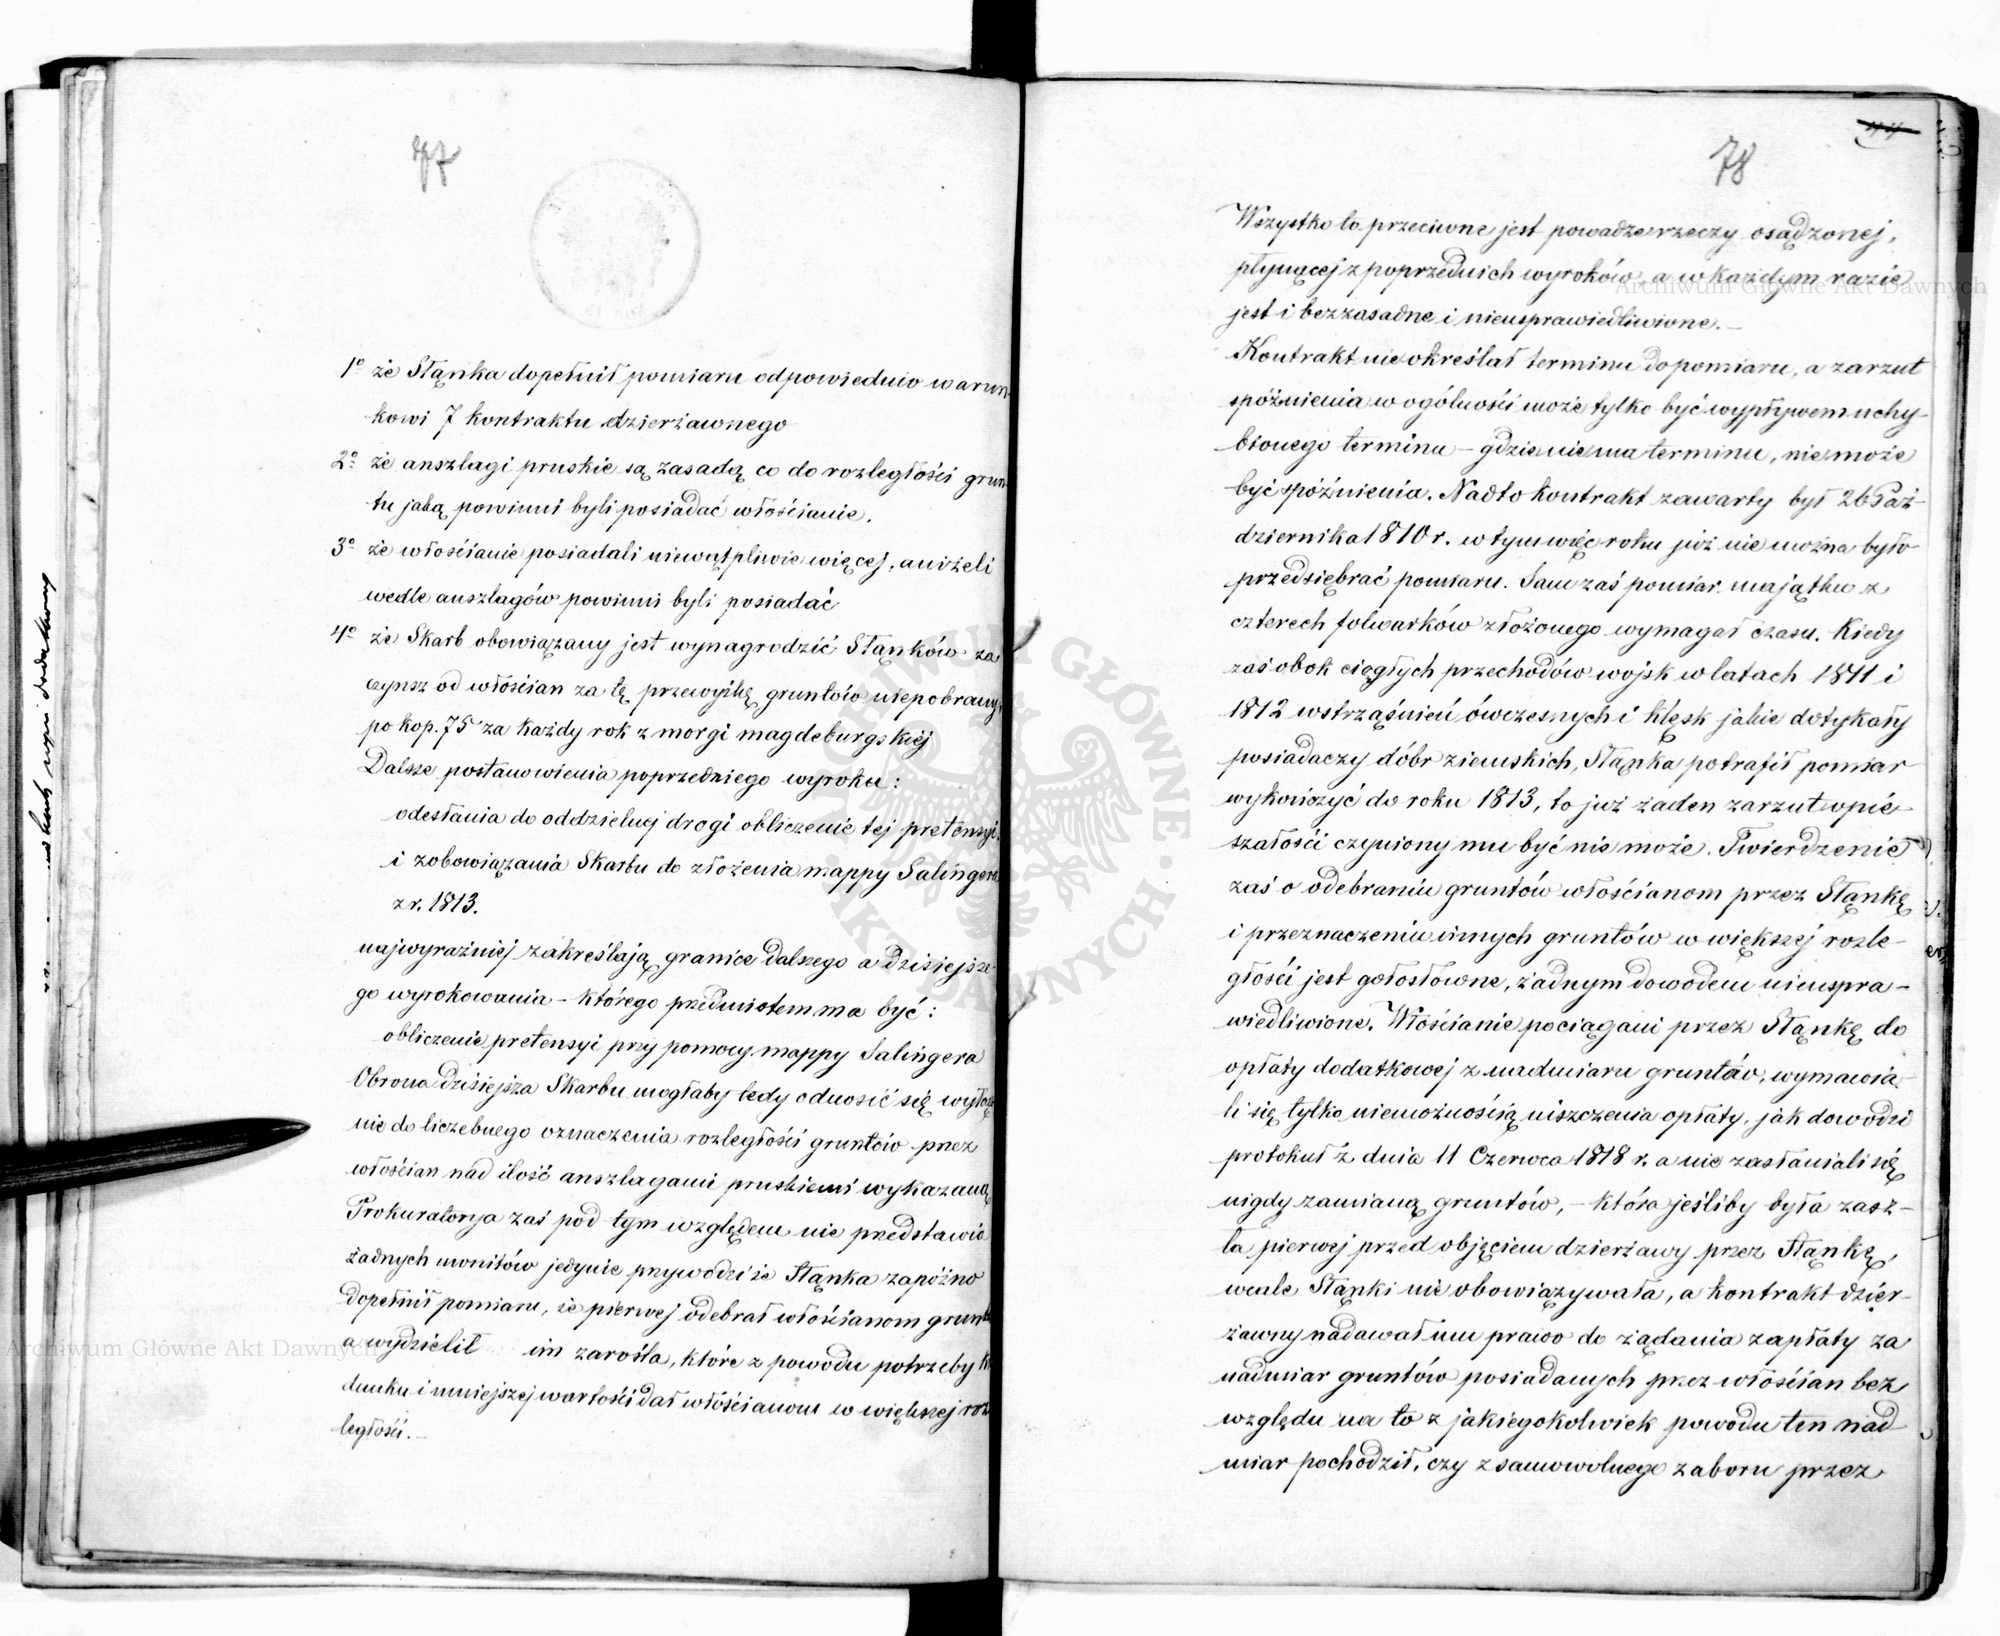 77
1o że Stąnka dopełnił pomiaru odpowiednio warun-
kowi 7 kontraktu dzierżawnego
2o że anszlagi pruskie są zasadą co do rozległości grun-
tu jaką powinni byli posiadać włościanie.
3o że włościanie posiadali niewątpliwie więcej, aniżeli
wedle anszlagów powinni byli posiadać
4o że Skarb obowiązany jest wynagrodzić Stąnków za
czynsz od włościan za tę przewyżkę gruntów niepobrany,
po kop. 75 za każdy rok z morgi magdeburgskiej
Dalsze postanowienia poprzedniego wyroku:
odesłania do oddzielnej drogi obliczenie tej pretensyi,
i zobowiązania Skarbu do złożenia mappy Salingera
z r. 1813.
najwyraźniej zakreślają granice dalszego a dzisiejsze-
go wyrokowania – którego przedmiotem ma być:
obliczenie pretensyi przy pomocy mappy Salingera
Obrona dzisiejsza Skarbu mogłaby tedy odnosić się wyłącz
nie do liczebnego oznaczenia rozległości gruntów przez
włościan nad ilość anszlagami pruskiemi wykazaną
Prokuratorya zaś pod tym względem nie przedstawia
żadnych monitów jedynie przywodzi że Stąnka zapóźno
dopełnił pomiaru, że pierwej odebrał włościanom grunta
a wydzielił im zarośla, które z powodu potrzeby kar
dunku i mniejszej wartości dał włościanom w większej roz
ległości. –
78
44
Wszystko to przeciwne jest powadze rzeczy osądzonej,
płynącej z poprzednich wyroków, a w każdym razie
jest i bezzasadne i nieusprawiedliwione. –
Kontrakt nie określał terminu do pomiaru, a zarzut
spóźnienia w ogólności może tylko być wypływem uchy-
bionego terminu – gdzie nie ma terminu, nie może
być spóźnienia. Nadto kontrakt zawarty był 26 Paź-
dziernika 1810 r. w tym więc roku już nie można było
przedsiębrać pomiaru. Sam zaś pomiar majątku z
czterech folwarków złożonego wymagał czasu. Kiedy
zaś obok ciągłych przechodów wojsk w latach 1811 i
1812 wstrząśnień ówczesnych i klęsk jakie dotykały
posiadaczy dóbr ziemskich, Stąnka potrafił pomiar
wykończyć do roku 1813, to już żaden zarzut opie-
szałości czyniony mu być nie może. Twierdzenie
zaś o odebraniu gruntów włościanom przez Stąnkę
i przeznaczeniu innych gruntów w większej rozle-
głości jest gołosłowne, żadnym dowodem nieuspra-
wiedliwione. Włościanie pociągani przez Stąnkę do
opłaty dodatkowej z nadmiaru gruntów, wymawia-
li się tylko niemożnością uiszczenia opłaty, jak dowodzi
protokuł z dnia 11 Czerwca 1818 r. a nie zasłaniali się
nigdy zamianą gruntów, – która jeśliby była zasz-
ła pierwej przed objęciem dzierżawy przez Stąnkę,
wcale Stąnki nie obowiązywała, a kontrakt dzier-
żawny nadawał mu prawo do żądania zapłaty za
nadmiar gruntów posiadanych przez włościan bez
względu na to z jakiegokolwiek powodu ten nad
miar pochodził, czy z samowolnego zaboru przez
Archiwum Główne Akt Dawnych
Archiwum Główne Akt Dawnych
ARCHIWUM GŁÓWNE AKT DAWNYCH